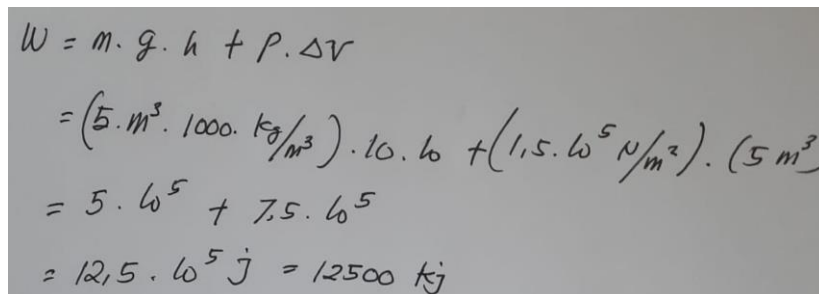 W = m . g . h + P . ΔV
= (5 . m³ . 1000 . kg/m³) . 10 . 10 + (1,5 . 10⁵ N/m²) . (5 m³)
= 5 . 10⁵ + 7,5 . 10⁵
= 12,5 . 10⁵ j = 12500 kj